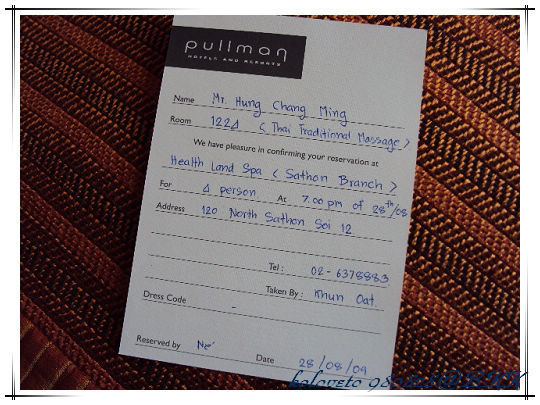 pullman
HOTELS AND RESORTS
Name Mr. Hung Chang Ming
Room 1224 (Thai Traditional Massage)
We have pleasure in confirming your reservation at
Health Land Spa (Sathon Branch)
For 4 person At 7.00 pm of 28th/08
Address 120 North Sathon Soi 12
Tel : 02-6378883
Taken By : Khun Oat
Dress Code -
Reserved by
Date 28/08/09